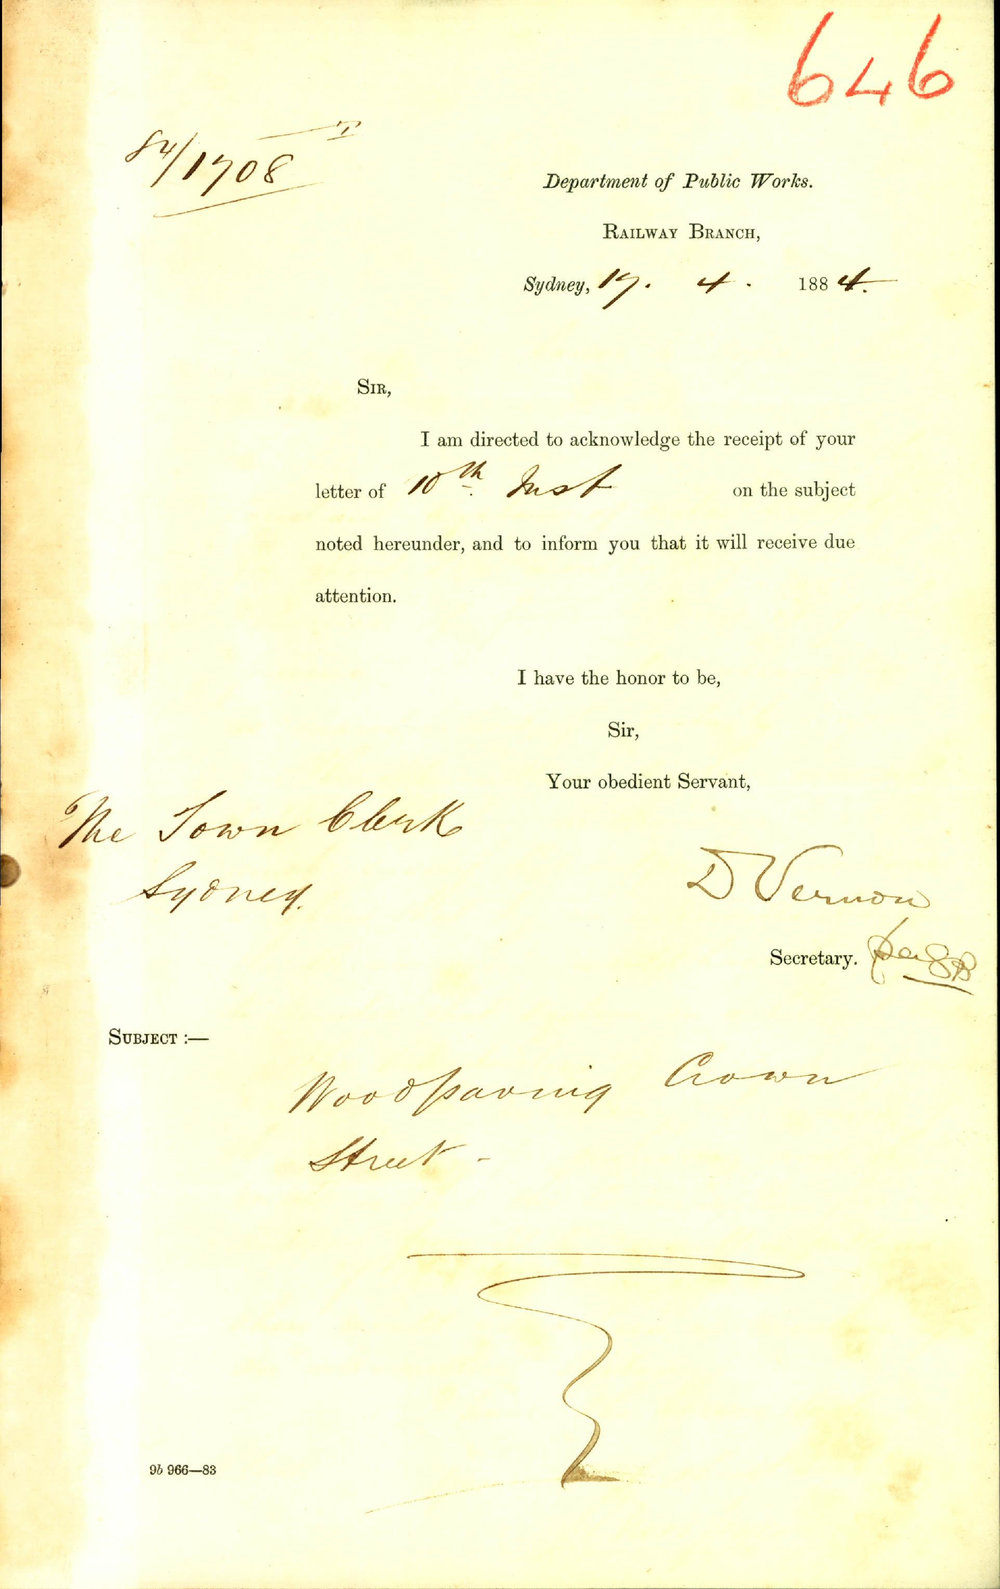 646
84/1708
T
Department of Public Works.
Railway Branch,
Sydney, 17. 4. 1884.
Sir,
I am directed to acknowledge the receipt of your
letter of 10th Inst on the subject
noted hereunder, and to inform you that it will receive due
attention.
I have the honor to be,
Sir,
Your obedient Servant,
The Town Clerk
Sydney.
D Vernon
Secretary.
Subject :—
Woodpaving Crown
Street -
9b 966—83